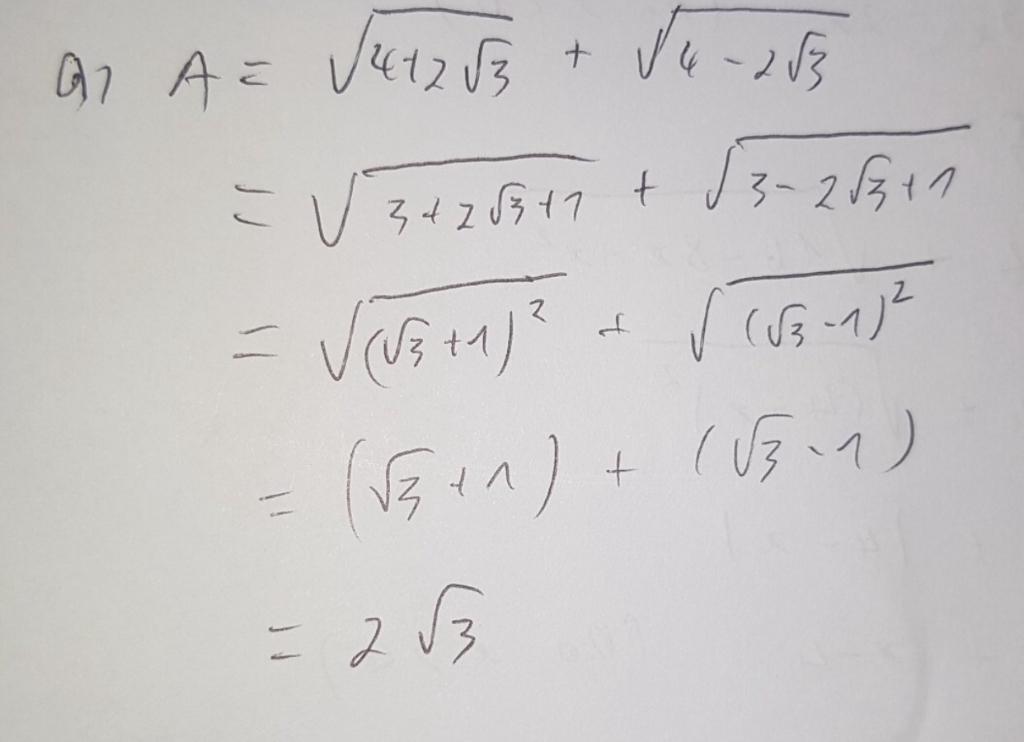 a, A = √(4+2√3) + √(4-2√3)
= √(3+2√3+1) + √(3-2√3+1)
= √((√3+1)²) + √((√3-1)²)
= (√3+1) + (√3-1)
= 2√3